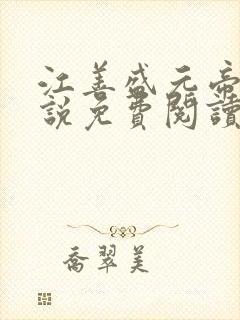 江善盛元帝
說免費閱讀
喬翠美